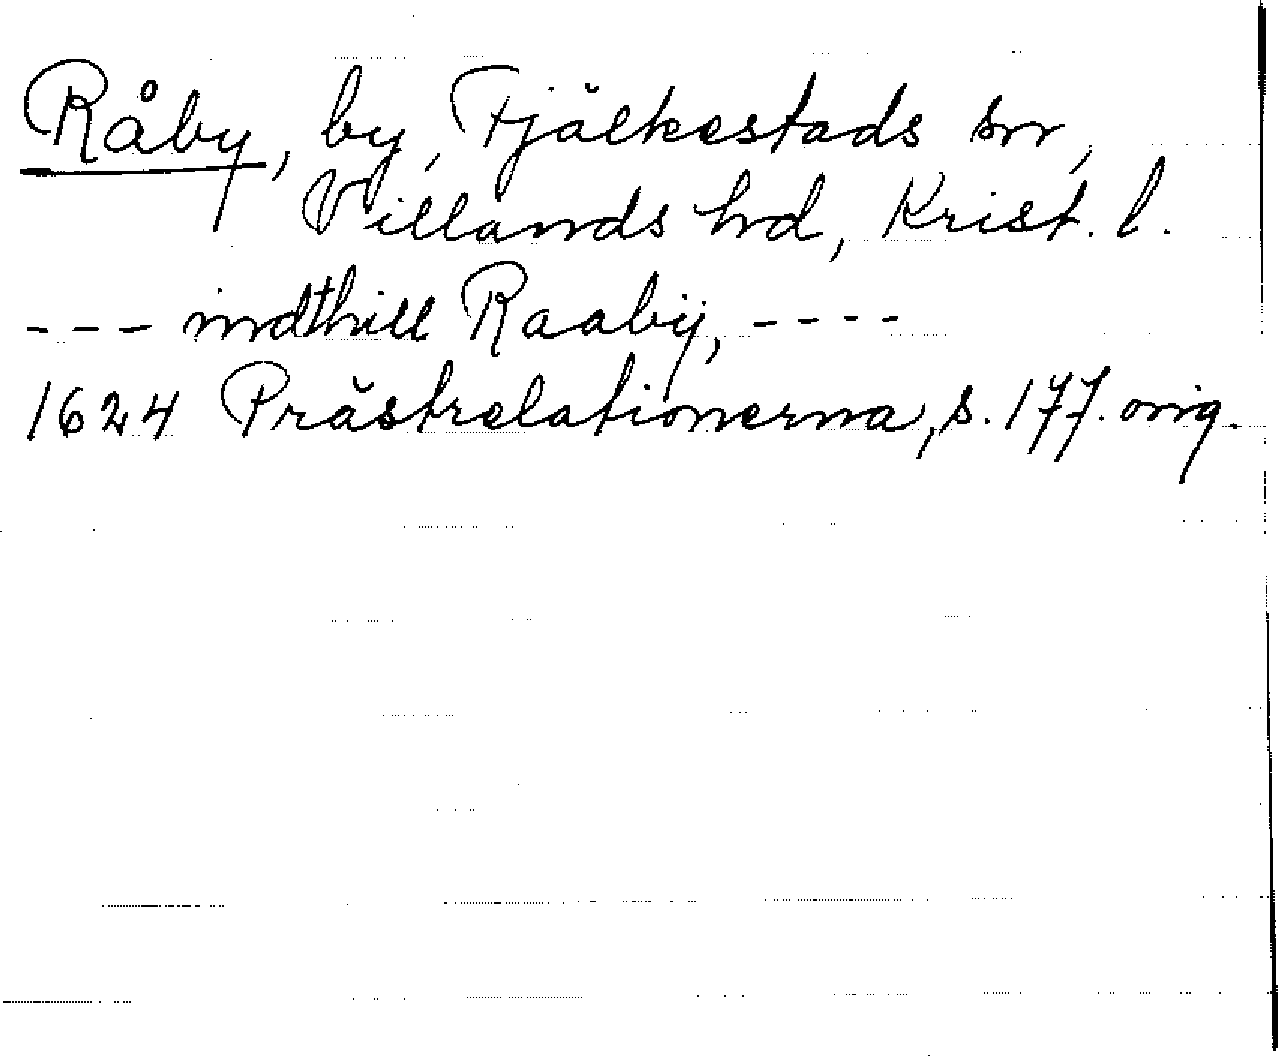 Råby, by, Fjälkestads sn,
Villands hd, Krist. l.
--- inndthill Raabÿ, ----
1624 Prästrelationerna, s. 177. orig.